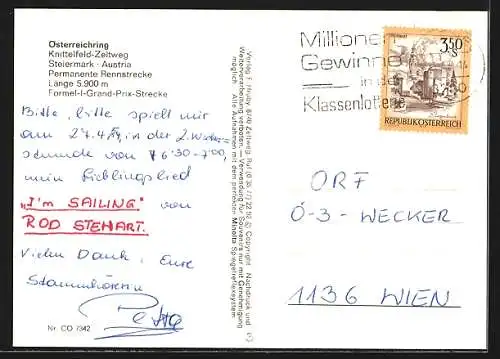 Österreichring
Knittelfeld-Zeltweg
Steiermark · Austria
Permanente Rennstrecke
Länge 5.900 m
Formel-I-Grand-Prix-Strecke
Bitte, bitte spielt mir
am 27.4. in der 2. Wecker-
stunde von 6 30-7 00,
mein Lieblingslied
"I'm SAILING" von
ROD STEHART.
Vielen Dank, Eure
Stammhörerin
Petra
Nr. CO 7342
Verlag F. Hruby, 8740 Zeltweg, Ruf (0 35 77) 22 52 © Nachdruck und
Weiterverarbeitung verboten. — Verwendung für Souvenirs nur mit Genehmigung
möglich. Alle Aufnahmen mit dem perfekten Minolta Spiegelreflexsystem
Millione
Gewinne
in der
Klassenlotterie
3.50
S
REPUBLIK ÖSTERREICH
ORF
Ö-3-WECKER
1136 WIEN